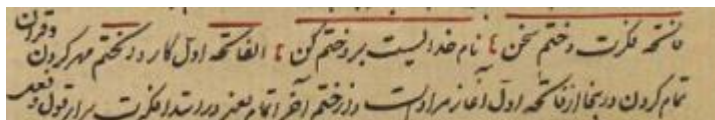 فاتحه فکرت و ختم سخن ٤ نام خدا لیست برو ختم کن ٤ الفاتحه اول کار و ختم مهر کردن و قرآن
تمام کردن و ربخا از فاتحه اول آغاز مراد است و از ختم آخر اتمام یعنی در ابتدا فکرت و قول و